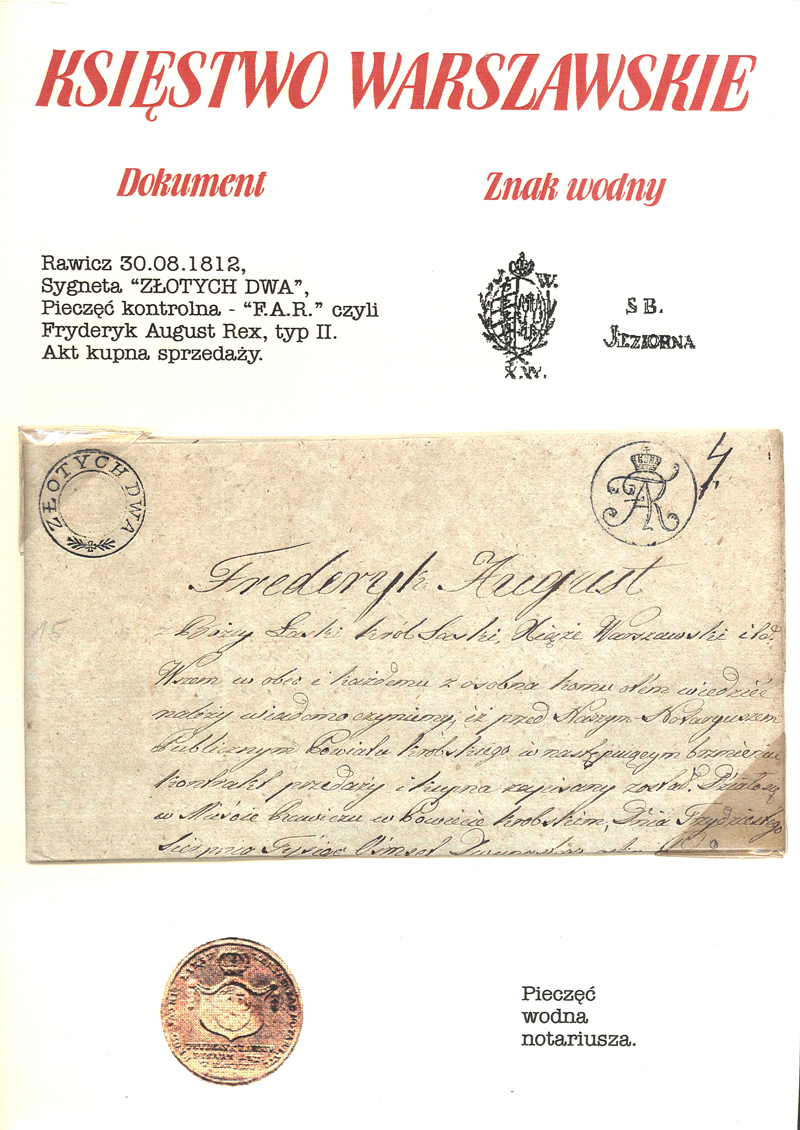 KSIĘSTWO WARSZAWSKIE
Dokument
Znak wodny
Rawicz 30.08.1812,
Sygneta “ZŁOTYCH DWA”,
Pieczęć kontrolna - “F.A.R.” czyli
Fryderyk August Rex, typ II.
Akt kupna sprzedaży.
W.
X.W.
S B.
JEZIORNA
ZŁOTYCH DWA
FAR
Frederyk August
z Bożey Łaski Król Saski, Xiąże Warszawski i td.
Wszem w obec i każdemu z osobna komu o tém wiedzieć
należy wiadomo czynimy, iż przed Naszym Notaryuszem
Publicznym Powiatu Krobskiego w następuiącym brzmieniu
Kontrakt przedaży i kupna zapisany został. Działo się
w Mieście Rawiczu w Powiecie Krobskim, Dnia Trzydziestego
Sierpnia Tysiąc Ośmset
Pieczęć
wodna
notariusza.